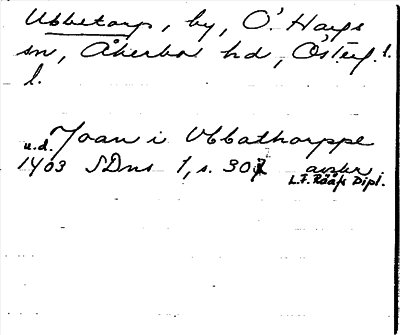 Ubbetorp, by, Ö. Hargs
sn, Åkerbo hd, Österg.
l.
u.d. Joan i Ubbathorppe
1403 SDns 1, s. 307 avskr
L.F. Rääfs Dipl.